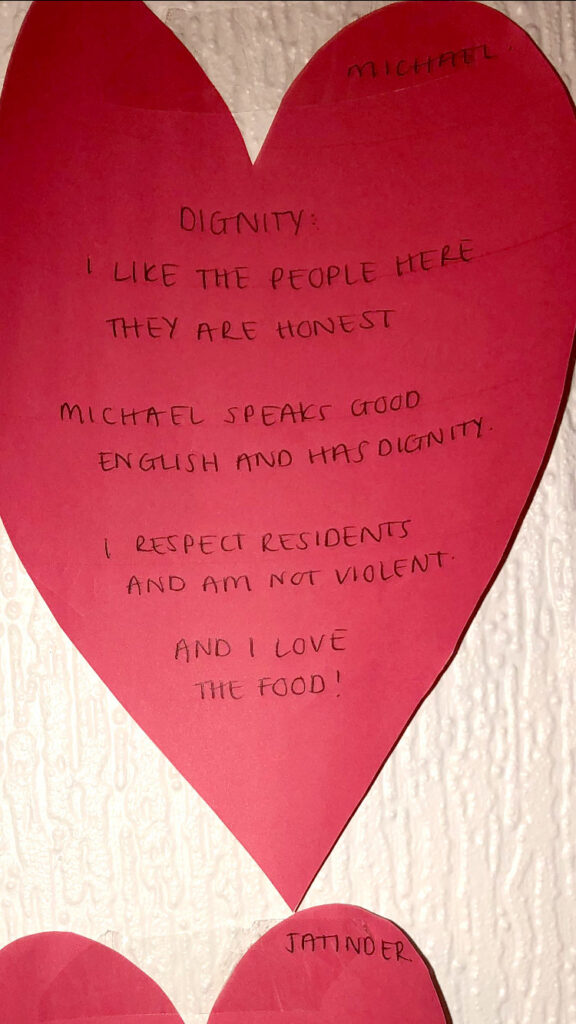 MICHAEL.
DIGNITY:
I LIKE THE PEOPLE HERE
THEY ARE HONEST
MICHAEL SPEAKS GOOD
ENGLISH AND HAS DIGNITY.
I RESPECT RESIDENTS
AND AM NOT VIOLENT.
AND I LOVE
THE FOOD!
JATINDER